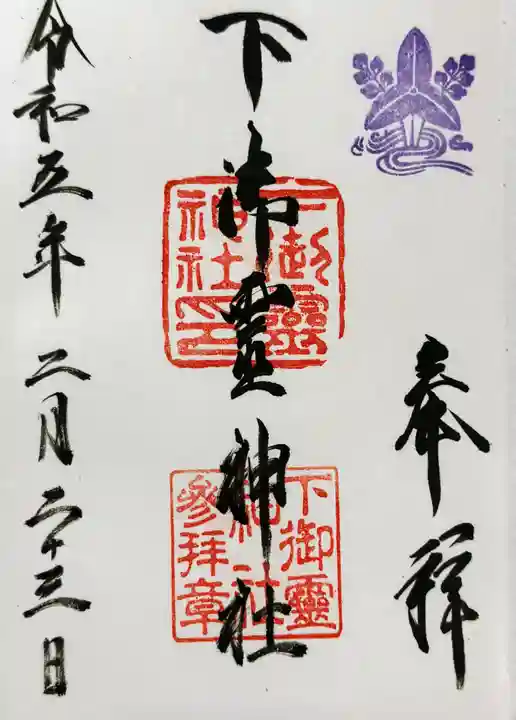 奉拝
下御霊神社
下御靈神社印
下御靈神社參拜章
令和五年二月二十三日